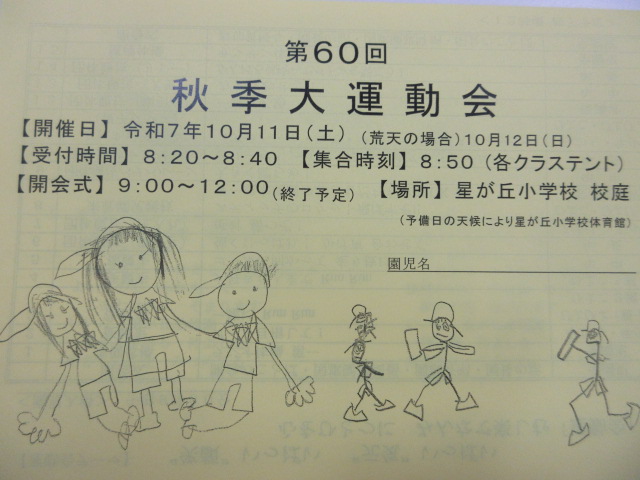 第60回
秋季大運動会
【開催日】令和7年10月11日(土)(荒天の場合)10月12日(日)
【受付時間】8:20～8:40 【集合時刻】8:50(各クラステント)
【開会式】9:00～12:00(終了予定) 【場所】星が丘小学校 校庭
(予備日の天候により星が丘小学校体育館)
園児名